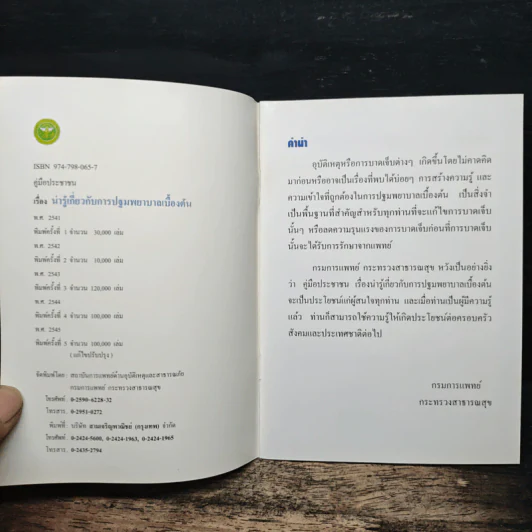 ISBN 974-798-065-7
คู่มือประชาชน
เรื่อง น่ารู้เกี่ยวกับการปฐมพยาบาลเบื้องต้น
พ.ศ. 2541
พิมพ์ครั้งที่ 1 จำนวน 30,000 เล่ม
พ.ศ. 2542
พิมพ์ครั้งที่ 2 จำนวน 10,000 เล่ม
พ.ศ. 2543
พิมพ์ครั้งที่ 3 จำนวน 120,000 เล่ม
พ.ศ. 2544
พิมพ์ครั้งที่ 4 จำนวน 100,000 เล่ม
พ.ศ. 2545
พิมพ์ครั้งที่ 5 จำนวน 100,000 เล่ม
(แก้ไขปรับปรุง)
จัดพิมพ์โดย : สถาบันการแพทย์ด้านอุบัติเหตุและสาธารณภัย
กรมการแพทย์ กระทรวงสาธารณสุข
โทรศัพท์ . 0-2590-6228-32
โทรสาร . 0-2951-0272
พิมพ์ที่ : บริษัท สามเจริญพาณิชย์ (กรุงเทพ) จำกัด
โทรศัพท์ . 0-2424-5600, 0-2424-1963, 0-2424-1965
โทรสาร . 0-2435-2794
คำนำ
อุบัติเหตุหรือการบาดเจ็บต่างๆ เกิดขึ้นโดยไม่คาดคิด
มาก่อนหรืออาจเป็นเรื่องที่พบได้บ่อยๆ การสร้างความรู้ และ
ความเข้าใจที่ถูกต้องในการปฐมพยาบาลเบื้องต้น เป็นสิ่งจำ
เป็นพื้นฐานที่สำคัญสำหรับทุกท่านที่จะแก้ไขการบาดเจ็บ
นั้นๆ หรือลดความรุนแรงของการบาดเจ็บก่อนที่การบาดเจ็บ
นั้นจะได้รับการรักษาจากแพทย์
กรมการแพทย์ กระทรวงสาธารณสุข หวังเป็นอย่างยิ่ง
ว่า คู่มือประชาชน เรื่องน่ารู้เกี่ยวกับการปฐมพยาบาลเบื้องต้น
จะเป็นประโยชน์แก่ผู้สนใจทุกท่าน และเมื่อท่านเป็นผู้มีความรู้
แล้ว ท่านก็สามารถใช้ความรู้ให้เกิดประโยชน์ต่อครอบครัว
สังคมและประเทศชาติต่อไป
กรมการแพทย์
กระทรวงสาธารณสุข